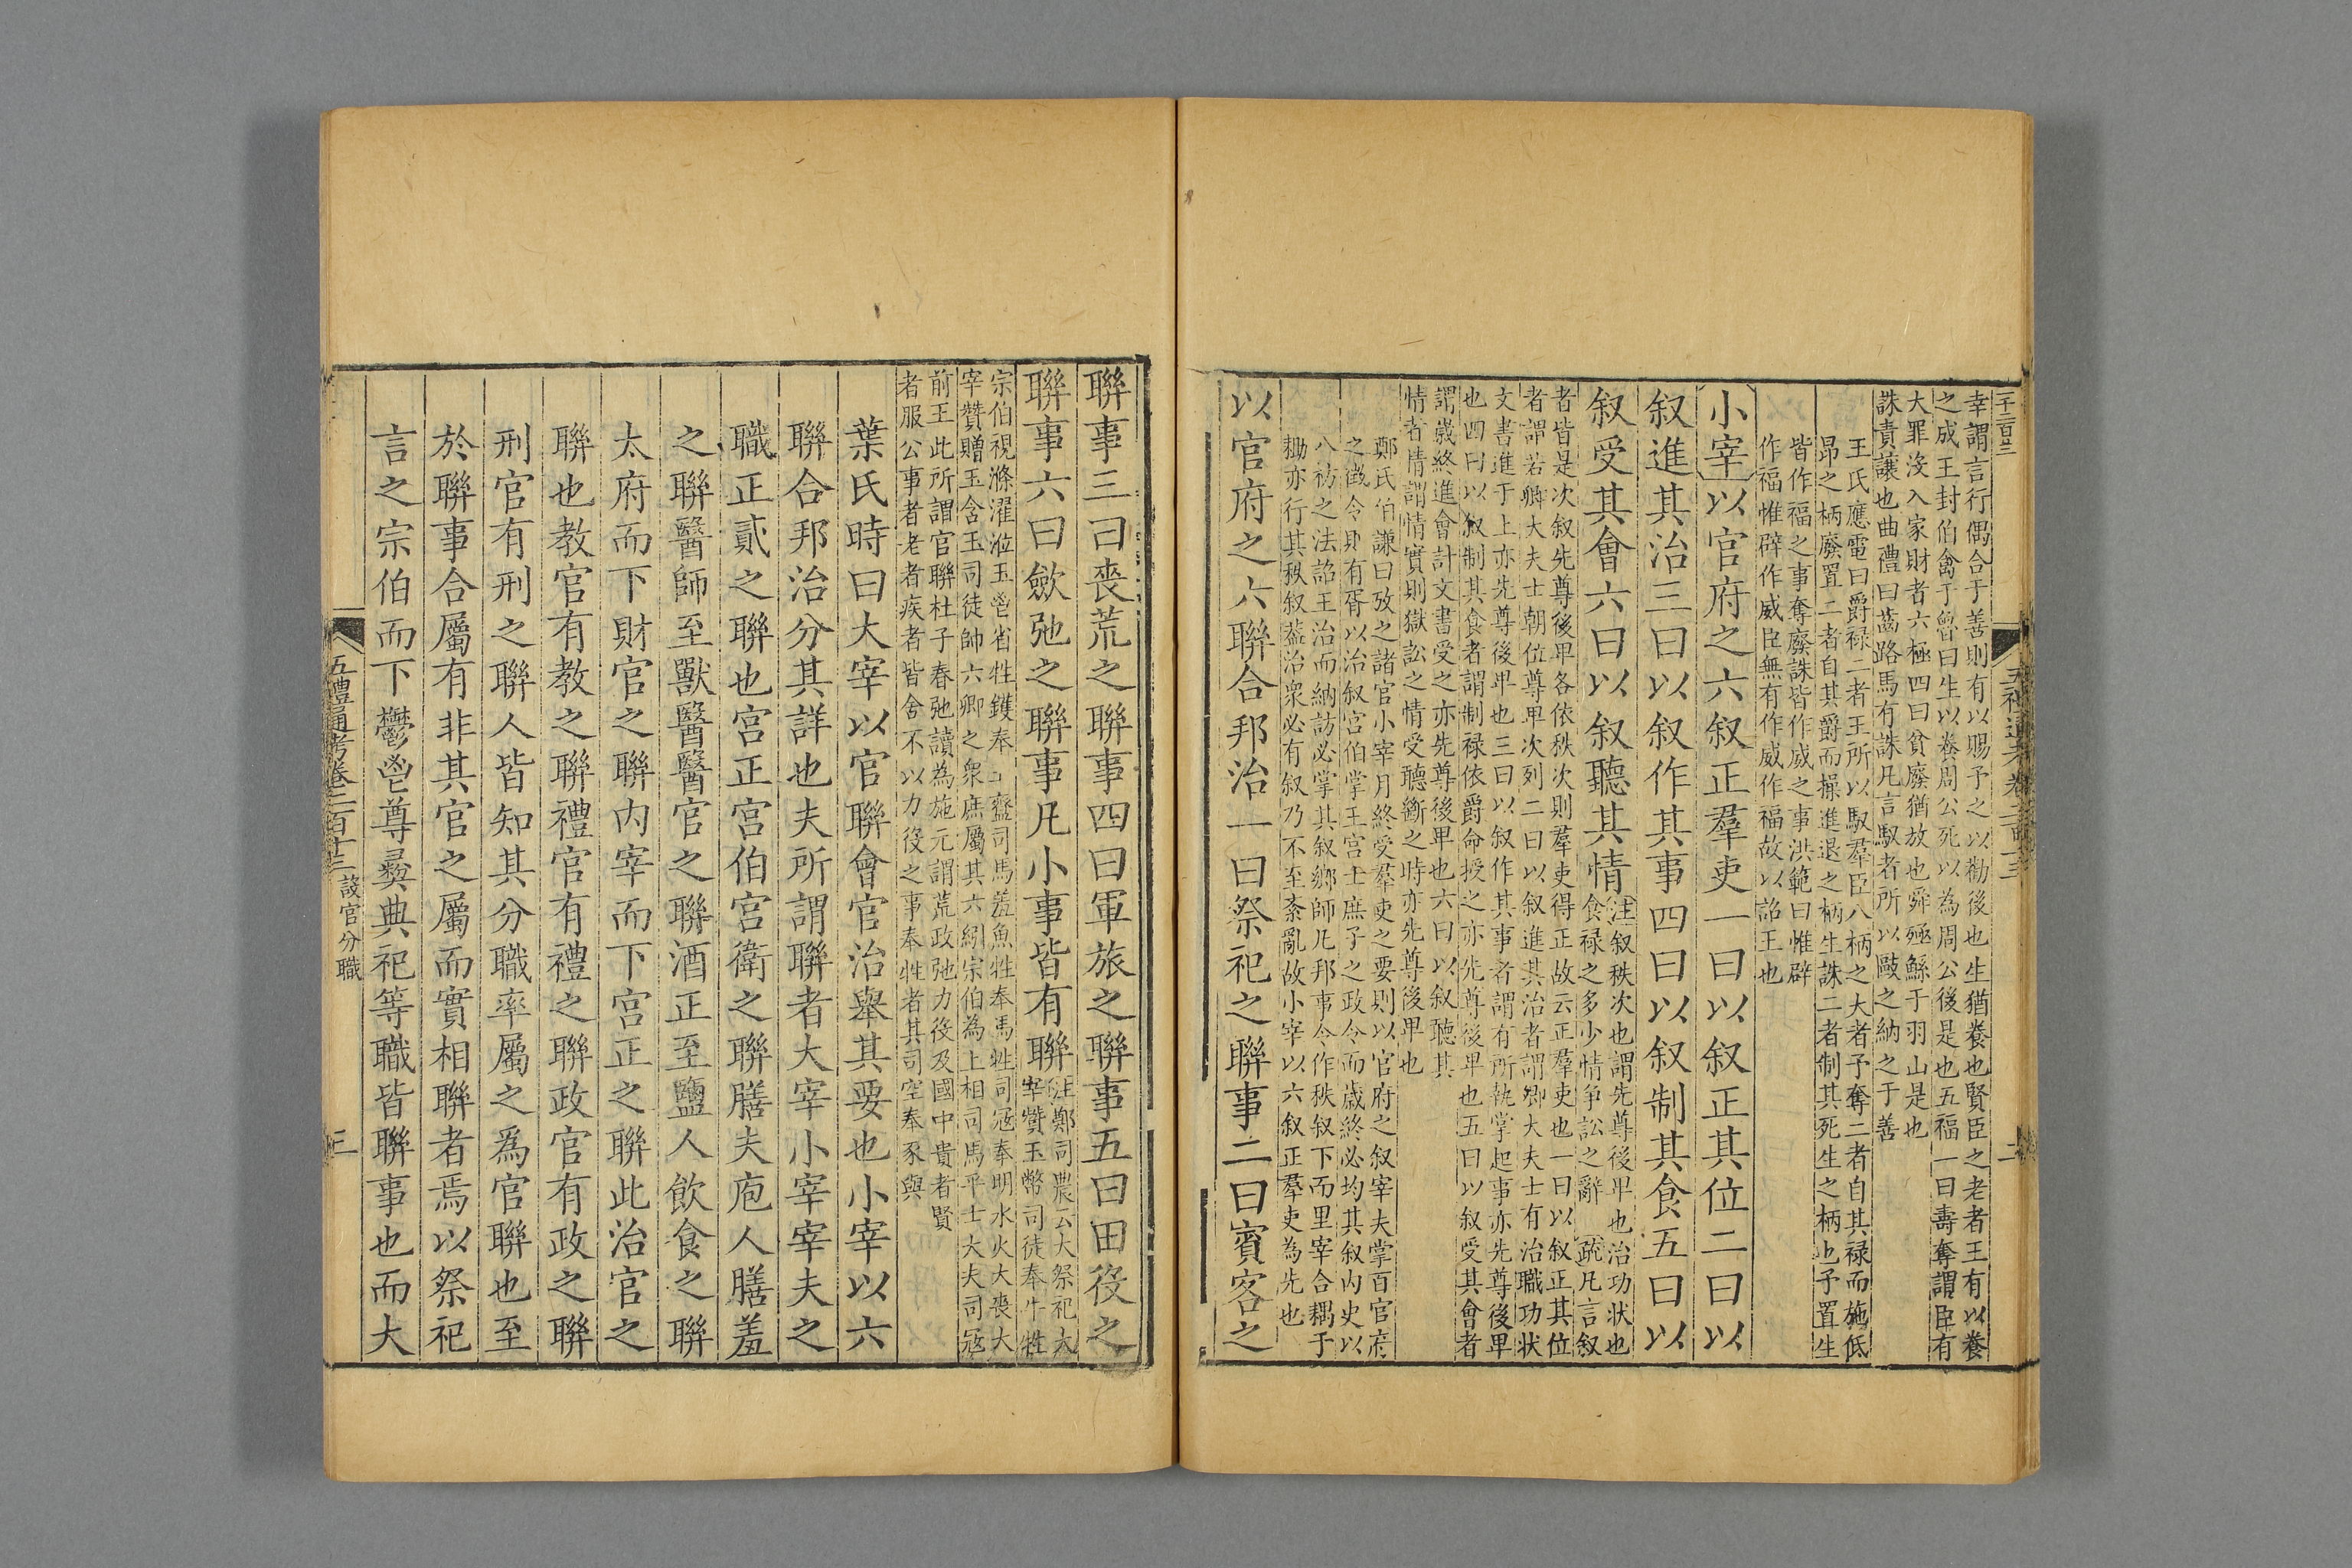 幸謂言行偶合于善則有以賜予之以勸後也生猶養也賢臣之老者王有以養
之成王封伯禽于魯曰生以養周公死以為周公後是也五福一曰壽奪謂臣有
大罪沒入家財者六極四曰貧廢猶放也舜殛鯀于羽山是也
誅責讓也曲禮曰齒路馬有誅凡言馭者所以敺之納之于善
王氏應電曰爵祿二者王所以馭羣臣八柄之大者予奪二者自其祿而施低
昂之柄廢置二者自其爵而操進退之柄生誅二者制其死生之柄也予置生
皆作福之事奪廢誅皆作威之事洪範曰惟辟
作福惟辟作威臣無有作威作福故以詔王也
小宰以官府之六叙正羣吏一曰以叙正其位二曰以
叙進其治三曰以叙作其事四曰以叙制其食五曰以
叙受其會六曰以叙聽其情
注叙秩次也謂先尊後卑也治功狀也
食祿之多少情爭訟之辭 疏凡言叙
者皆是次叙先尊後卑各依秩次則羣吏得正故云正羣吏也一曰以叙正其位
者謂若卿大夫士朝位尊卑次列二曰以叙進其治者謂卿大夫士有治職功狀
文書進于上亦先尊後卑也三曰以叙作其事者謂有所執掌起事亦先尊後卑
也四曰以叙制其食者謂制祿依爵命授之亦先尊後卑也五曰以叙受其會者
謂歲終進會計文書受之亦先尊後卑也六曰以叙聽其
情者情謂情實則獄訟之情受聽斷之時亦先尊後卑也
鄭氏伯謙曰攷之諸官小宰月終受羣吏之要則以官府之叙宰夫掌百官府
之徵令則有胥以治叙宮伯掌王宮士庶子之政令而歲終必均其叙內史以
八枋之法詔王治而納訪必掌其叙鄉師凡邦事令作秩叙下而里宰合耦于
耡亦行其秩叙蓋治衆必有叙乃不至紊亂故小宰以六叙正羣吏為先也
以官府之六聯合邦治一曰祭祀之聯事二曰賓客之
聯事三曰喪荒之聯事四曰軍旅之聯事五曰田役之
聯事六曰斂弛之聯事凡小事皆有聯
注鄭司農云大祭祀大
宰贊玉幣司徒奉牛牲
宗伯視滌濯涖玉鬯省牲鑊奉玉齍司馬羞魚牲奉馬牲司寇奉明水火大喪大
宰贊贈玉含玉司徒帥六鄉之衆庶屬其六紖宗伯為上相司馬平士大夫司寇
前王此所謂官聯杜子春弛讀為施元謂荒政弛力役及國中貴者賢
者服公事者老者疾者皆舍不以力役之事奉牲者其司空奉豕與
葉氏時曰大宰以官聯會官治舉其要也小宰以六
聯合邦治分其詳也夫所謂聯者大宰小宰宰夫之
職正貳之聯也宮正宮伯宮衛之聯膳夫庖人膳羞
之聯醫師至獸醫醫官之聯酒正至鹽人飲食之聯
太府而下財官之聯內宰而下宮正之聯此治官之
聯也教官有教之聯禮官有禮之聯政官有政之聯
刑官有刑之聯人皆知其分職率屬之爲官聯也至
於聯事合屬有非其官之屬而實相聯者焉以祭祀
言之宗伯而下鬱鬯尊彝典祀等職皆聯事也而大
五禮通考卷二百十三 設官分職
三